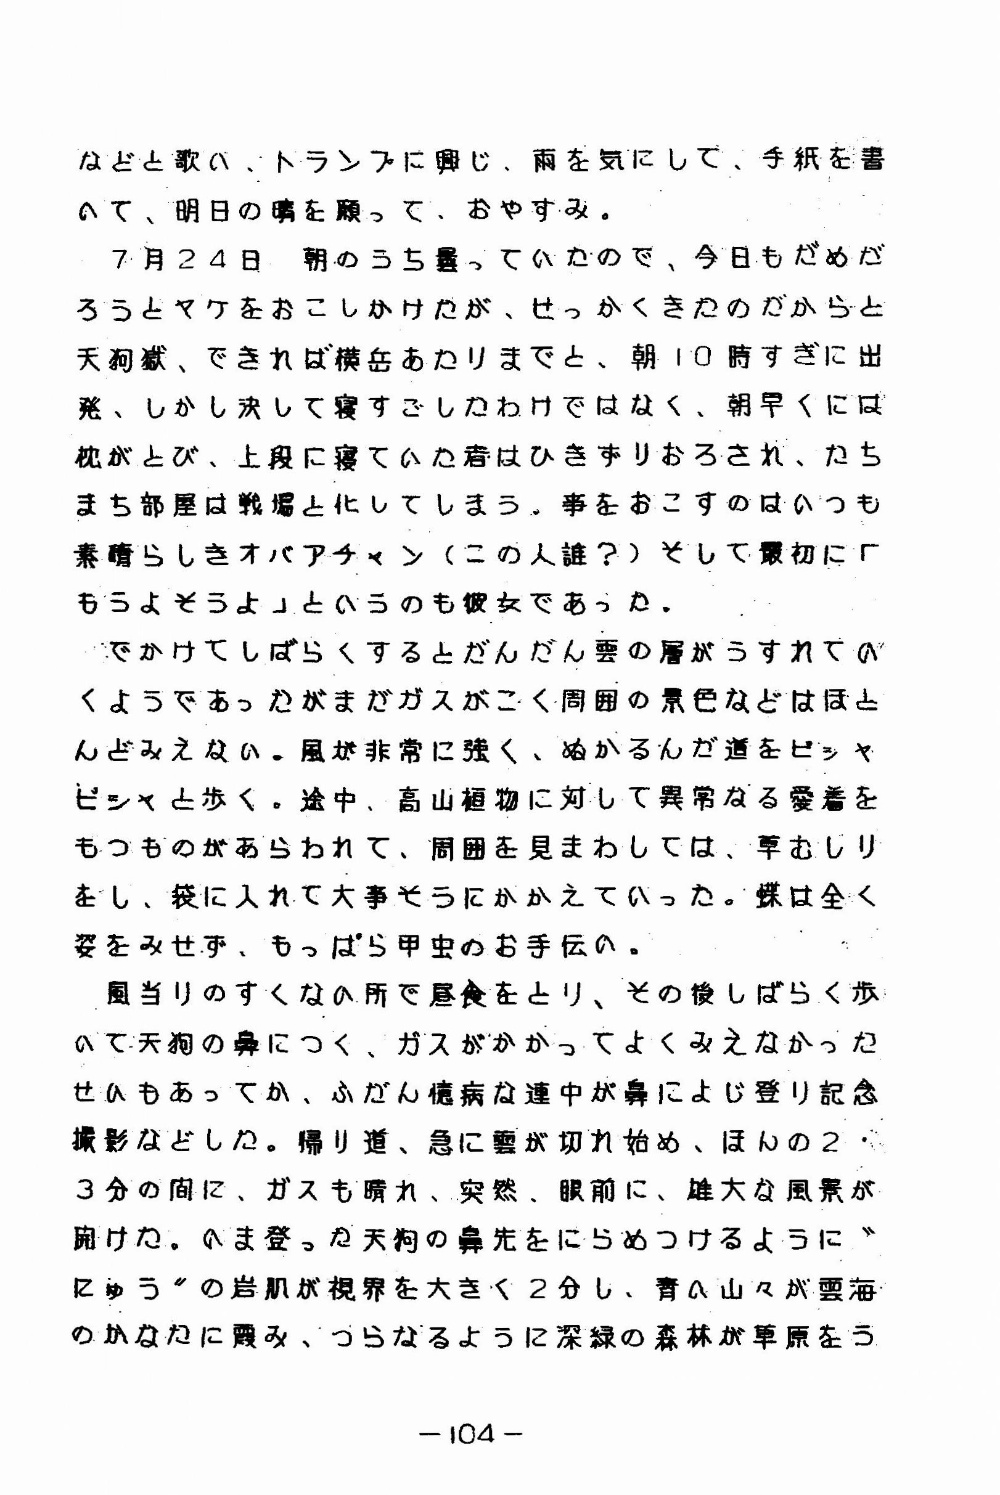 などと歌い、トランプに興じ、雨を気にして、手紙を書
いて、明日の晴を願って、おやすみ。
7月24日　朝のうち曇っていたので、今日もだめだ
ろうとヤケをおこしかけたが、せっかくきたのだからと
天狗嶽、できれば横岳あたりまでと、朝10時すぎに出
発、しかし決して寝すごしたわけではなく、朝早くには
枕がとび、上段に寝ていた者はひきずりおろされ、たち
まち部屋は戦場と化してしまう。事をおこすのはいつも
素晴らしきオバアチャン(この人誰?)そして最初に「
もうよそうよ」というのも彼女であった。
でかけてしばらくするとだんだん雲の層がうすれてい
くようであったがまだガスがこく周囲の景色などはほと
んどみえない。風が非常に強く、ぬかるんだ道をピシャ
ピシャと歩く。途中、高山植物に対して異常なる愛着を
もつものがあらわれて、周囲を見まわしては、草むしり
をし、袋に入れて大事そうにかかえていった。蝶は全く
姿をみせず、もっぱら甲虫のお手伝い。
風当りのすくない所で昼食をとり、その後しばらく歩
いて天狗の鼻につく、ガスがかかってよくみえなかった
せいもあってか、ふだん憶病な連中が鼻によじ登り記念
撮影などした。帰り道、急に雲が切れ始め、ほんの2・
3分の間に、ガスも晴れ、突然、眼前に、雄大な風景が
開けた。いま登った天狗の鼻先をにらめつけるように〝
にゅう〟の岩肌が視界を大きく2分し、青い山々が雲海
のかなたに霞み、つらなるように深緑の森林が草原をう
-104-